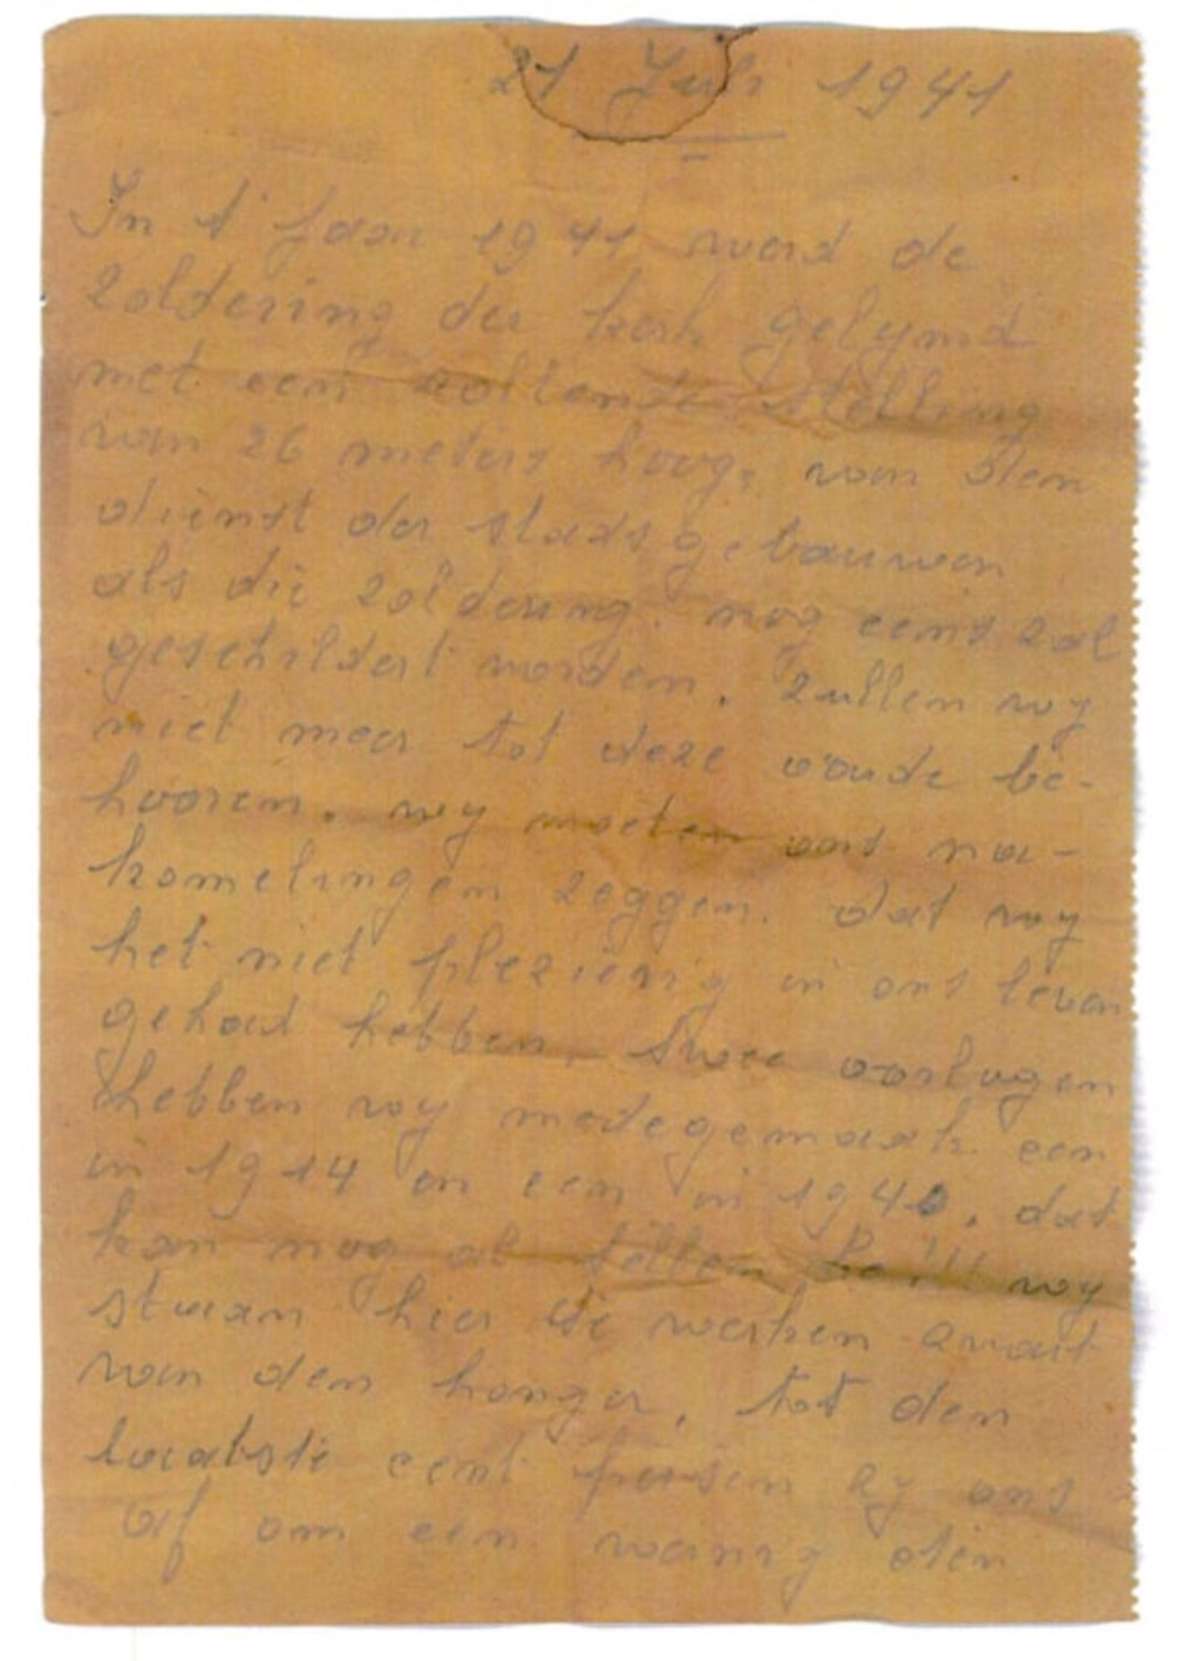 21 Juli 1941
In 't jaar 1941 word de
zoldering der kerk gelymd
met een rollende stelling
van 26 meters hoog, van den
dienst der stads gebauwen
als die zoldering nog eens zal
geschildert worden. zullen wy
niet meer tot deze oaude be-
hooren. wy moeten ons na-
komelingen zeggen. dat wy
het niet plezierig in ons leven
gehad hebben, twee oorlogen
hebben wy medegemaak een
in 1914 en een in 1940, dat
kan nog al tellen wy
staan hier te werken zwart
van den honger, tot den
laatste cent persen zy ons
af om een wenig eten